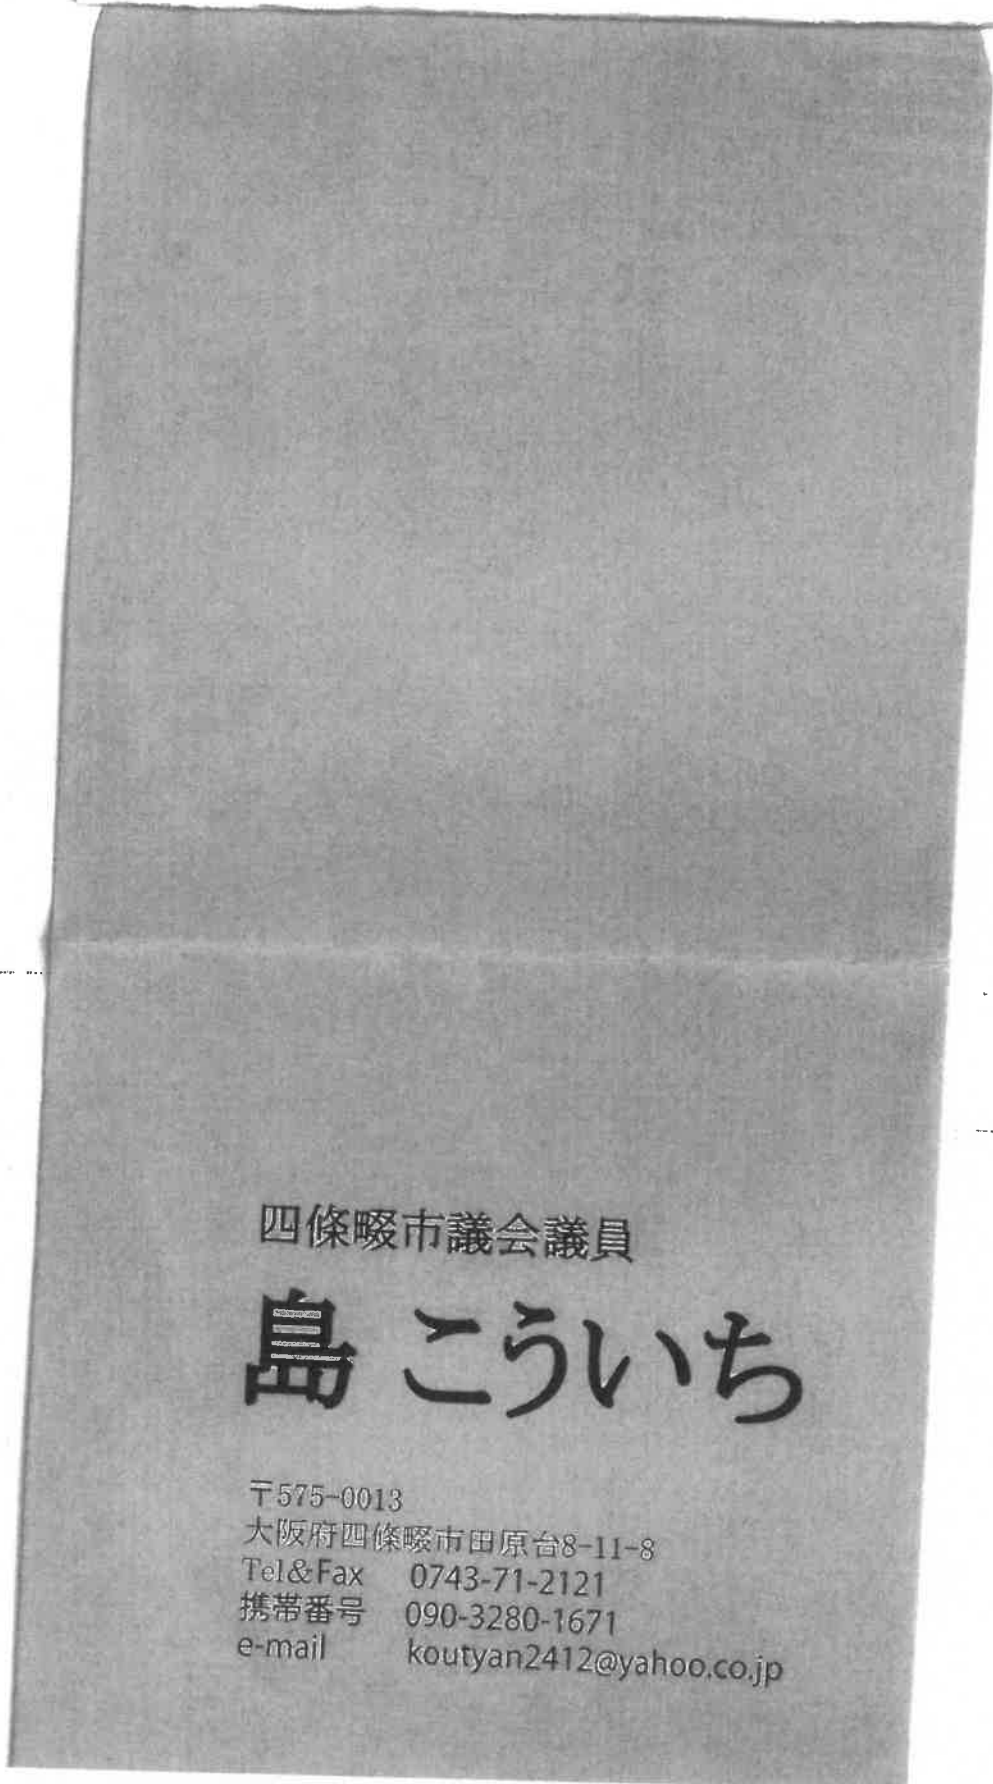 四條畷市議会議員
島 こういち
〒575-0013
大阪府四條畷市田原台8-11-8
Tel&Fax 0743-71-2121
携帯番号 090-3280-1671
e-mail koutyan2412@yahoo.co.jp